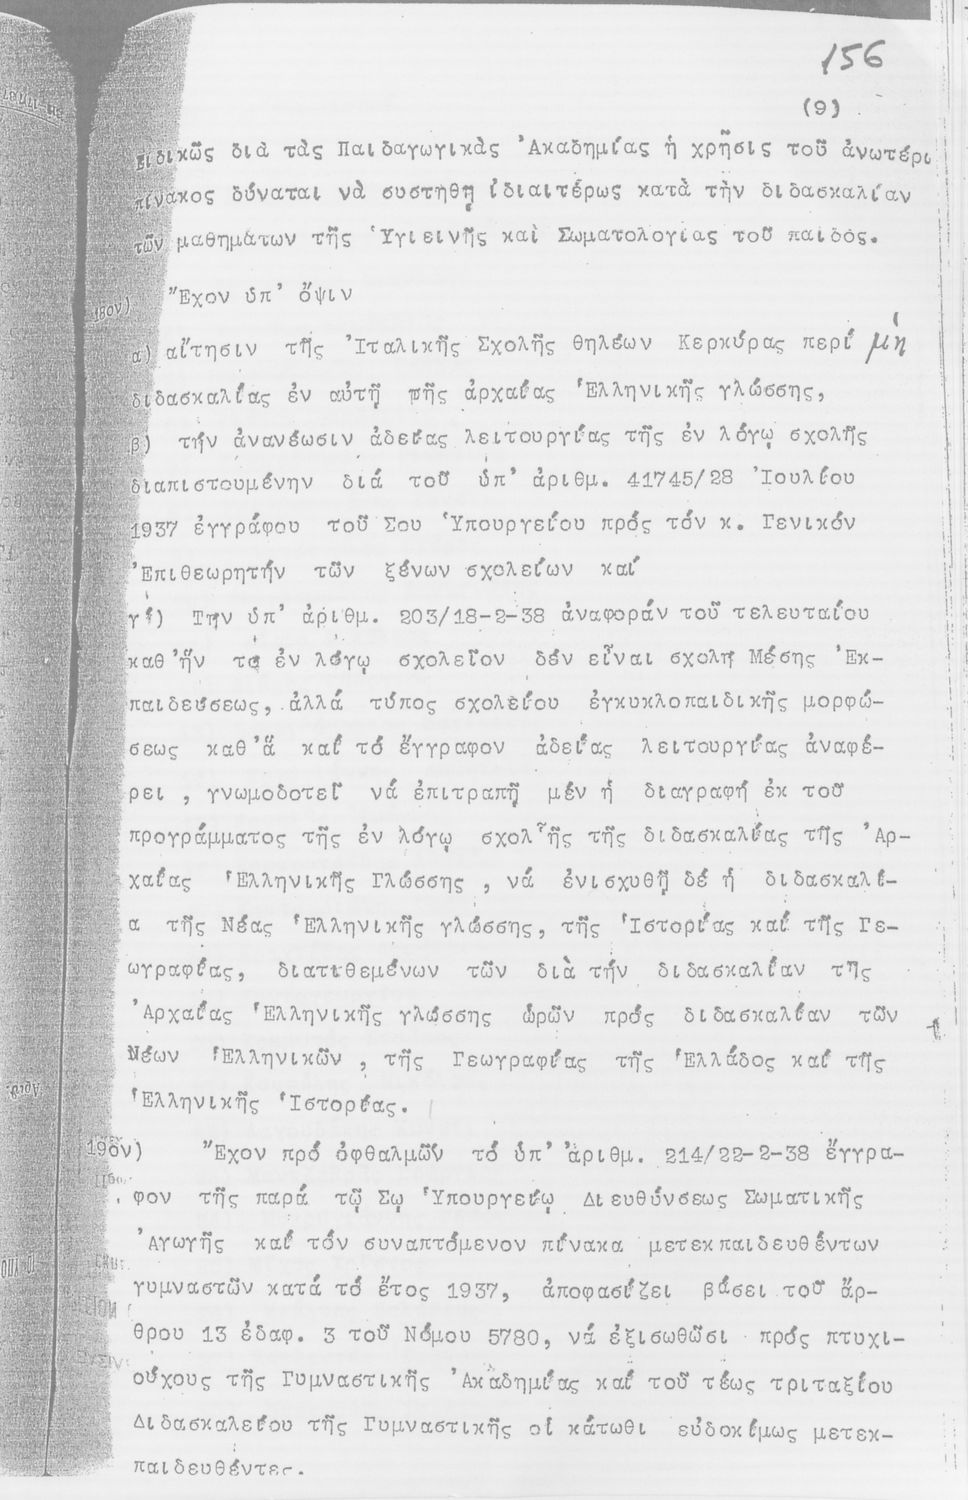 156
(9)
Ειδικῶς διὰ τὰς Παιδαγωγικὰς Ἀκαδημίας ἡ χρῆσις τοῦ ἀνωτέρω
πίνακος δύναται νὰ συστηθῇ ἰδιαιτέρως κατὰ τὴν διδασκαλίαν
τῶν μαθημάτων τῆς Ὑγιεινῆς καὶ Σωματολογίας τοῦ παιδός.
18ον) Ἔχον ὑπ' ὄψιν
α) αἴτησιν τῆς Ἰταλικῆς Σχολῆς θηλέων Κερκύρας περί μή
διδασκαλίας ἐν αὐτῇ τῆς ἀρχαίας Ἑλληνικῆς γλώσσης,
β) τήν ἀνανέωσιν ἀδείας λειτουργίας τῆς ἐν λόγῳ σχολῆς
διαπιστουμένην διά τοῦ ὑπ' ἀριθμ. 41745/28 Ἰουλίου
1937 ἐγγράφου τοῦ Σου Ὑπουργείου πρός τόν κ. Γενικόν
Ἐπιθεωρητήν τῶν ξένων σχολείων καί
γ) Την ὑπ' ἀριθμ. 203/18-2-38 ἀναφοράν τοῦ τελευταίου
καθ' ἥν το ἐν λόγῳ σχολεῖον δέν εἶναι σχολή Μέσης Ἐκ-
παιδεύσεως, ἀλλά τύπος σχολείου ἐγκυκλοπαιδικῆς μορφώ-
σεως καθ' ἅ καί τό ἔγγραφον ἀδείας λειτουργίας ἀναφέ-
ρει , γνωμοδοτεῖ νά ἐπιτραπῇ μέν ἡ διαγραφή ἐκ τοῦ
προγράμματος τῆς ἐν λόγῳ σχολῆς τῆς διδασκαλίας τῆς Ἀρ-
χαίας Ἑλληνικῆς Γλώσσης , νά ἐνισχυθῇ δέ ἡ διδασκαλί-
α τῆς Νέας Ἑλληνικῆς γλώσσης, τῆς Ἱστορίας καί τῆς Γε-
ωγραφίας, διατιθεμένων τῶν διὰ τήν διδασκαλίαν τῆς
Ἀρχαίας Ἑλληνικῆς γλώσσης ὡρῶν πρός διδασκαλίαν τῶν
Νέων Ἑλληνικῶν , τῆς Γεωγραφίας τῆς Ἑλλάδος καί τῆς
Ἑλληνικῆς Ἱστορίας.
19ον) Ἔχον πρό ὀφθαλμῶν τό ὑπ' ἀριθμ. 214/22-2-38 ἔγγρα-
φον τῆς παρά τῷ Σῳ Ὑπουργείῳ Διευθύνσεως Σωματικῆς
Ἀγωγῆς καί τόν συναπτόμενον πίνακα μετεκπαιδευθέντων
γυμναστῶν κατά τό ἔτος 1937, ἀποφασίζει βάσει τοῦ ἄρ-
θρου 13 ἐδαφ. 3 τοῦ Νόμου 5780, νά ἐξισωθῶσι πρός πτυχι-
ούχους τῆς Γυμναστικῆς Ἀκαδημίας καί τοῦ τέως τριταξίου
Διδασκαλείου τῆς Γυμναστικῆς οἱ κάτωθι εὐδοκίμως μετεκ-
παιδευθέντες.